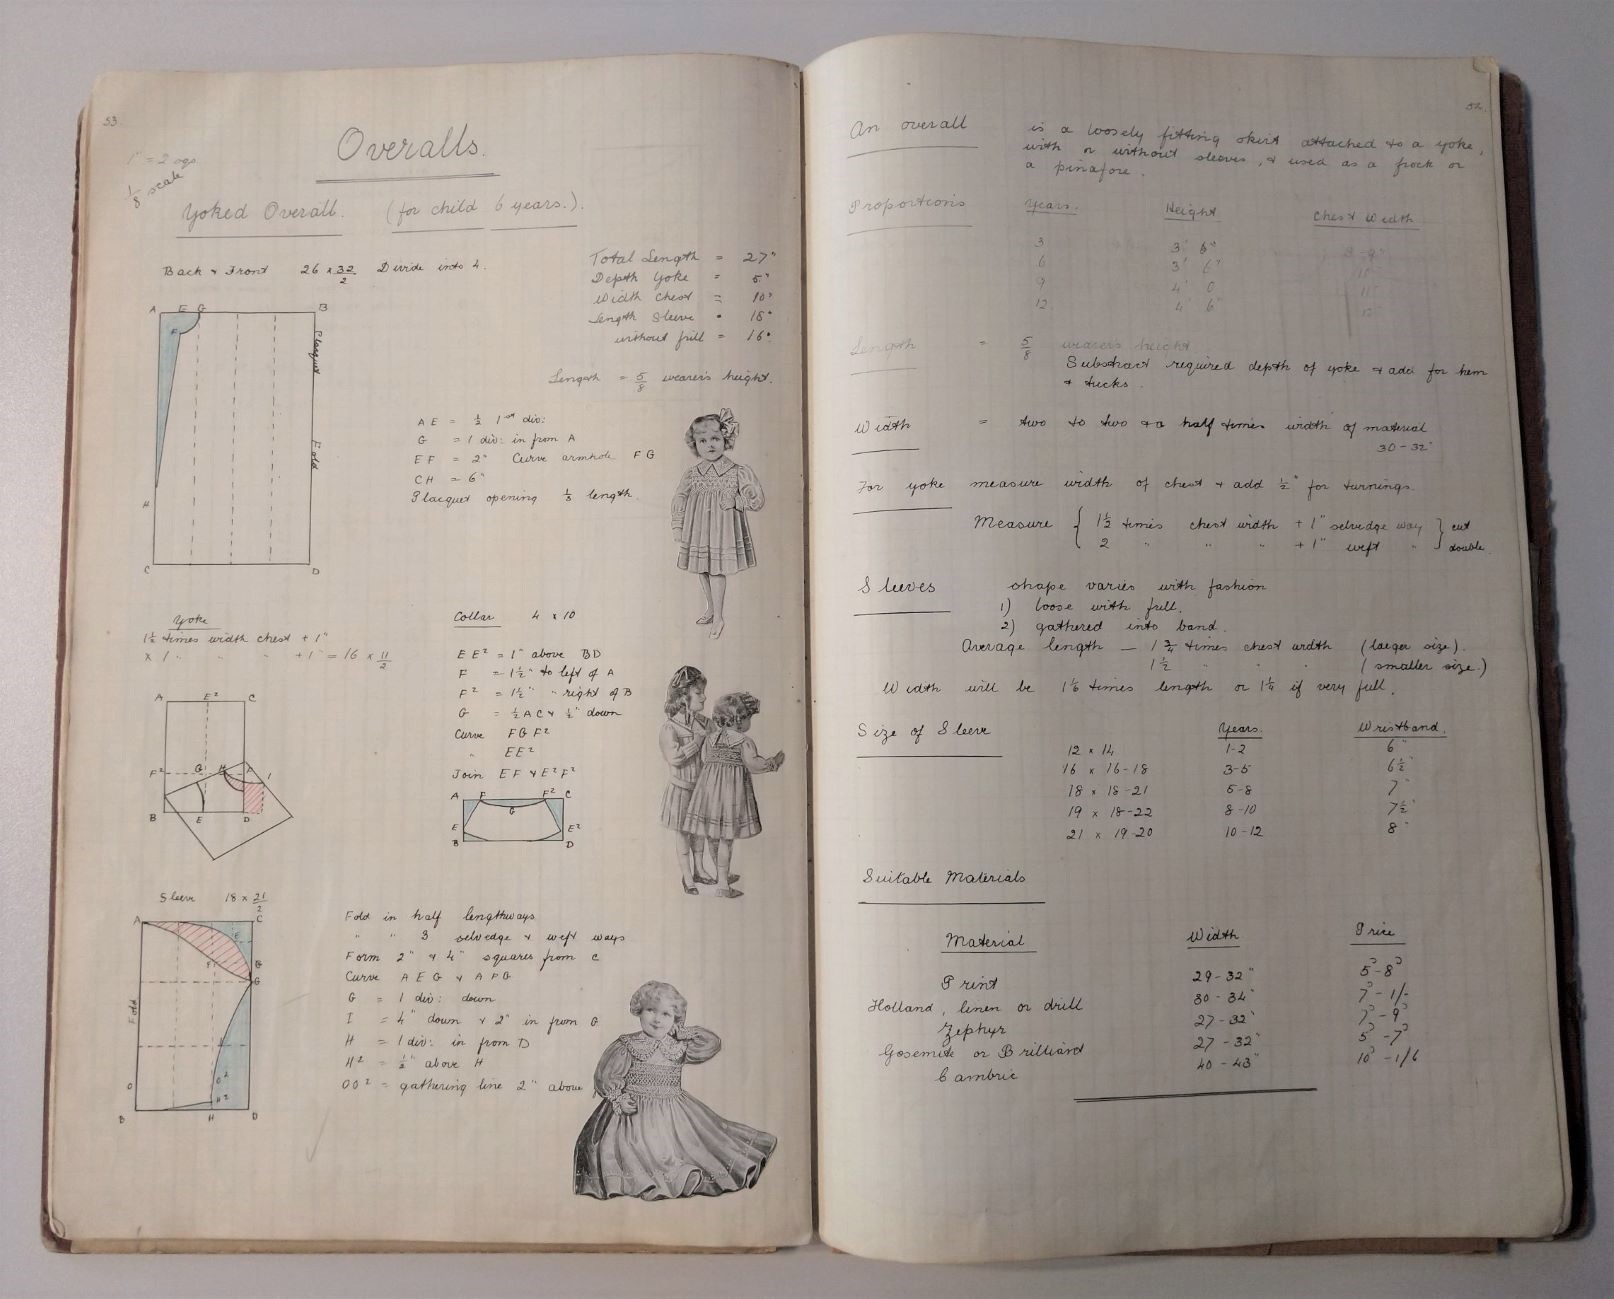 53.
1" = 2 sqs
1/8 scale
Overalls.
Yoked Overall. (for child 6 years.).
Back & Front 26 x 32/2 Divide into 4.
Total Length = 27"
Depth Yoke = 5"
Width Chest = 10"
Length Sleeve = 18"
without frill = 16"
Length = 5/8 wearer's height.
A E G B
F
Placquet
Fold
H
C D
AE = 1/2 1st div:
G = 1 div: in from A
EF = 2" Curve armhole FG
CH = 6"
Placquet opening 1/3 length.
Yoke
1 1/2 times width chest + 1"
x 1 " " " + 1" = 16 x 11/2
A E² C
F² G H A I
B E D
Collar 4 x 10
EE² = 1" above BD
F = 1 1/2" to left of A
F² = 1 1/2" " right of B
G = 1/2 AC & 1/2" down
Curve FGF²
" EE²
Join EF & E²F²
A F F² C
G
E E²
B D
Sleeve 18 x 21/2
A C
E
F B
G
Fold
O O²
H²
B H D
Fold in half lengthways
" " 3 selvedge & weft ways
Form 2" & 4" squares from C
Curve AEG & AFG
G = 1 div: down
I = 4" down & 2" in from G
H = 1 div: in from D
H² = 1/2" above H
OO² = gathering line 2" above
52.
An overall is a loosely fitting skirt attached to a yoke,
with or without sleeves, & used as a frock or
a pinafore.
Proportions Years. Height Chest Width
3 3' 6" 8-9"
6 3' 6" 10"
9 4' 0 11"
12 4' 6" 12"
Length = 5/8 wearer's height
Substract required depth of yoke & add for hem
& tucks.
Width = two to two & a half times width of material
30-32"
For yoke measure width of chest & add 1/2" for turnings.
Measure { 1 1/2 times chest width + 1" selvedge way } cut
2 " " " + 1" weft " } double.
Sleeves shape varies with fashion
1) loose with full.
2) gathered into band.
Average length – 1 3/4 times chest width (larger size).
1 1/2 " " " (smaller size.)
Width will be 1 1/6 times length or 1 1/4 if very full.
Size of Sleeve Years. Wristband.
12 x 14 1-2 6"
16 x 16-18 3-5 6 1/2"
18 x 18-21 5-8 7"
19 x 18-22 8-10 7 1/2"
21 x 19-20 10-12 8"
Suitable Materials
Material Width Price
Print 29-32" 5ᴰ-8ᴰ
Holland, linen or drill 30-34" 7ᴰ-1/-
Zephyr 27-32" 7ᴰ-9ᴰ
Gosemite or Brilliard 27-32" 5ᴰ-7ᴰ
Cambric 40-43" 10ᴰ-1/6